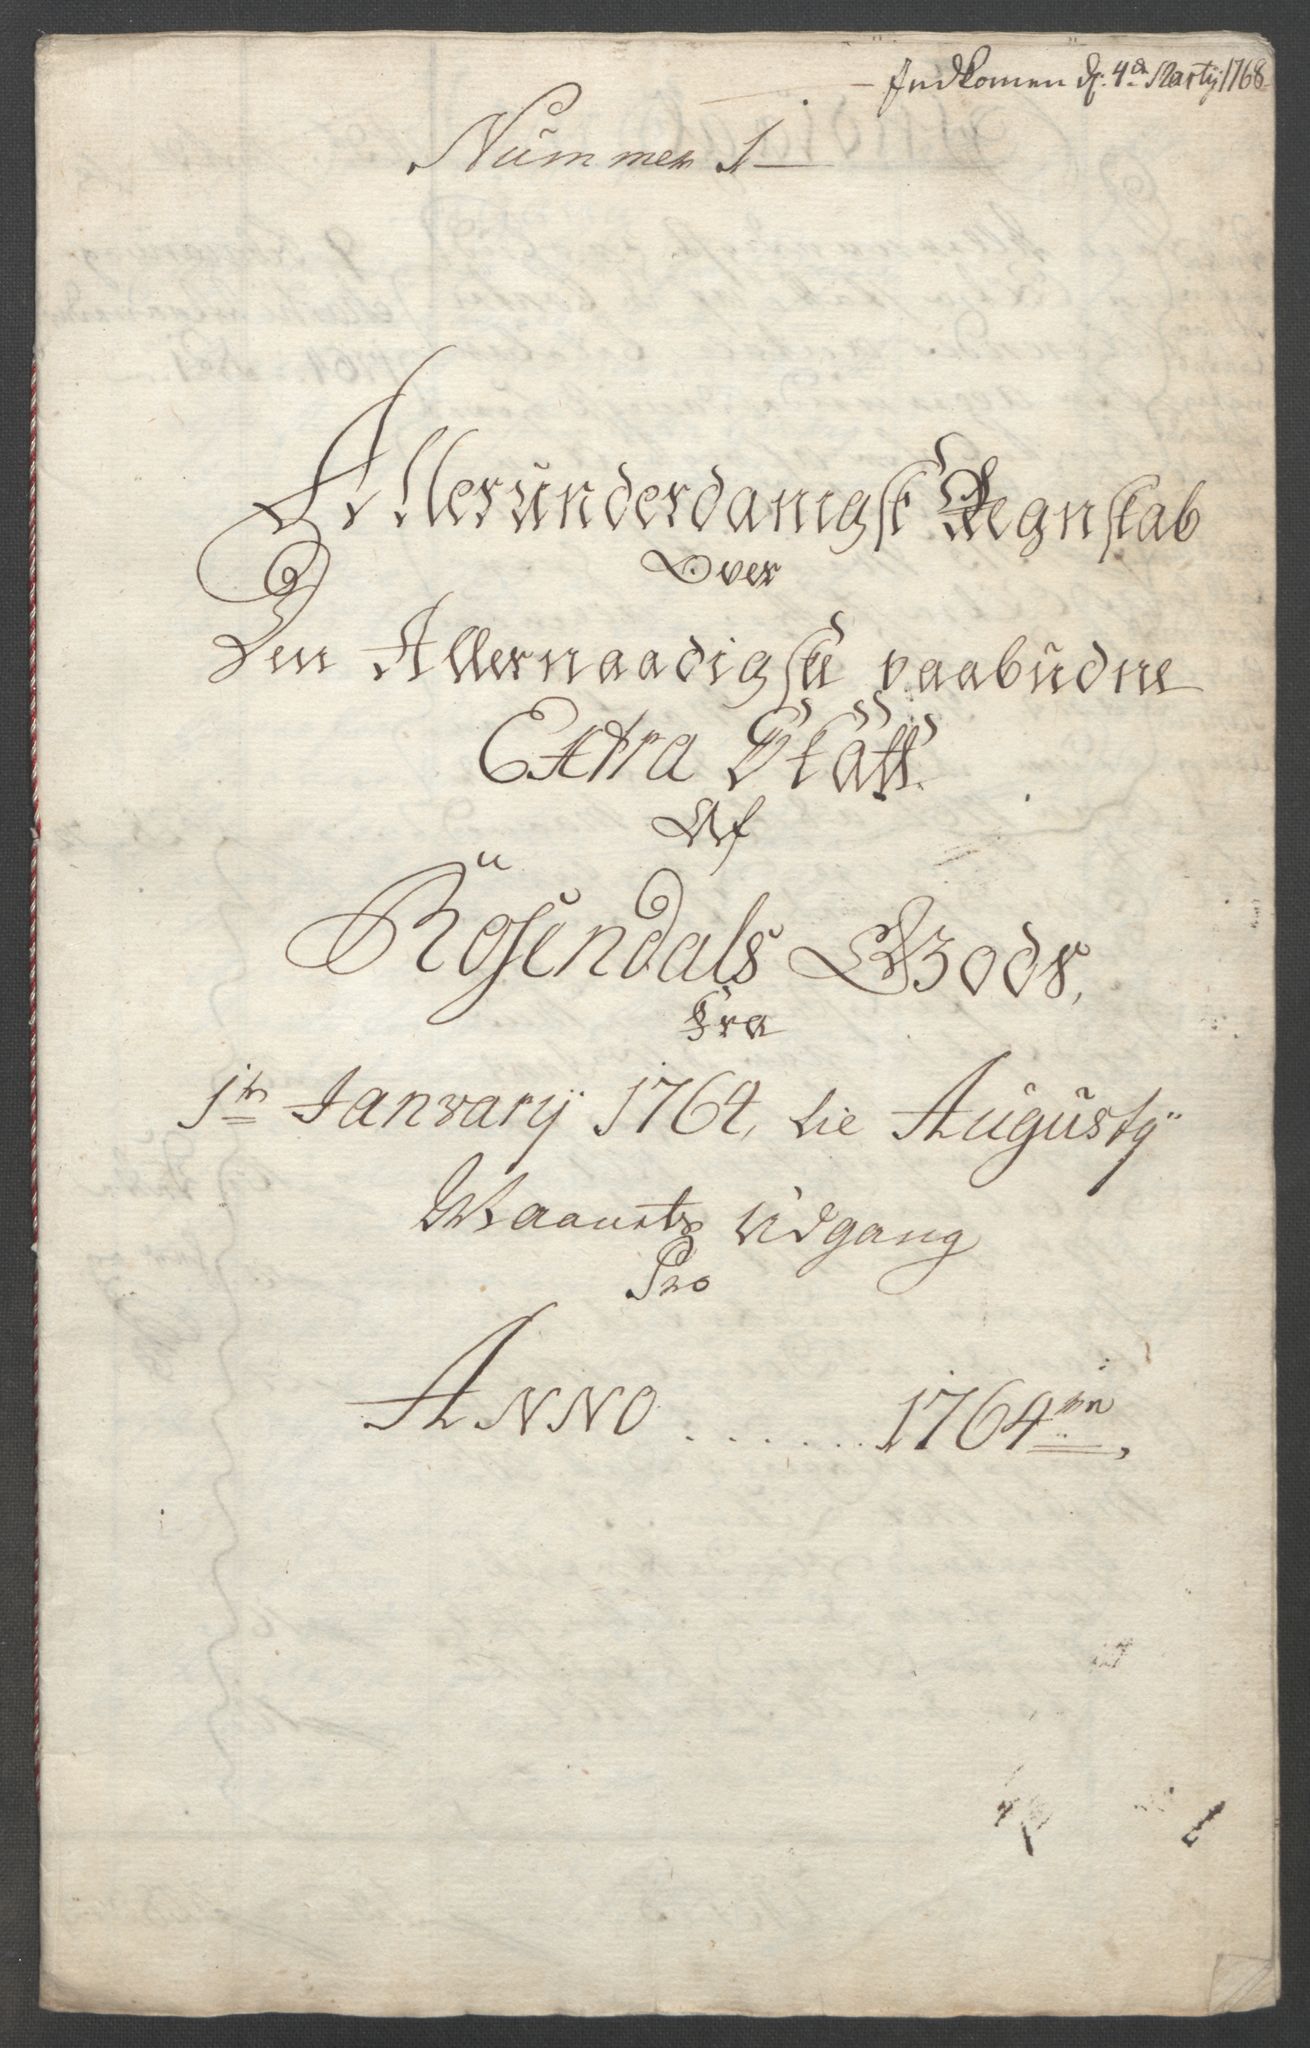 Indkomen d. 4de Martij 1768
Nummer 1
Allerunderdanigst Regnskab
Over
Den Allernaadigste paabudne
Extra Skatt
Af
Rosendals Gods,
Fra
1te January 1764, til Augusty
Maanets Udgang
Pro
ANNO ...... 1764